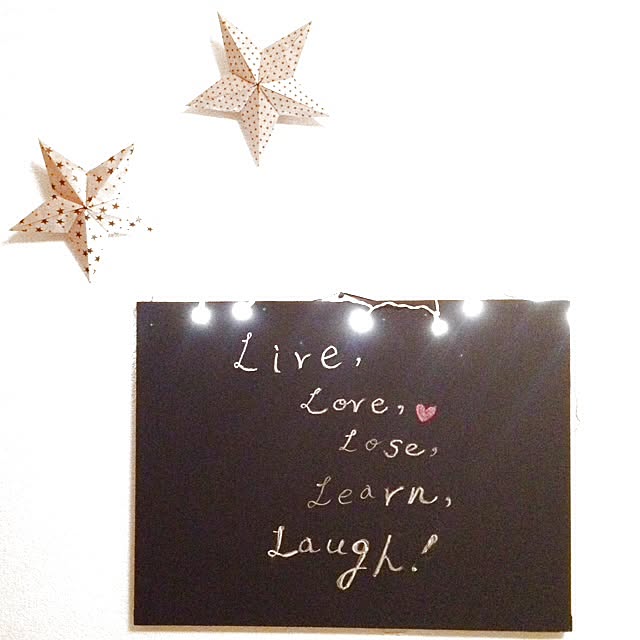 Live,
Love,
Lose,
Learn,
Laugh!